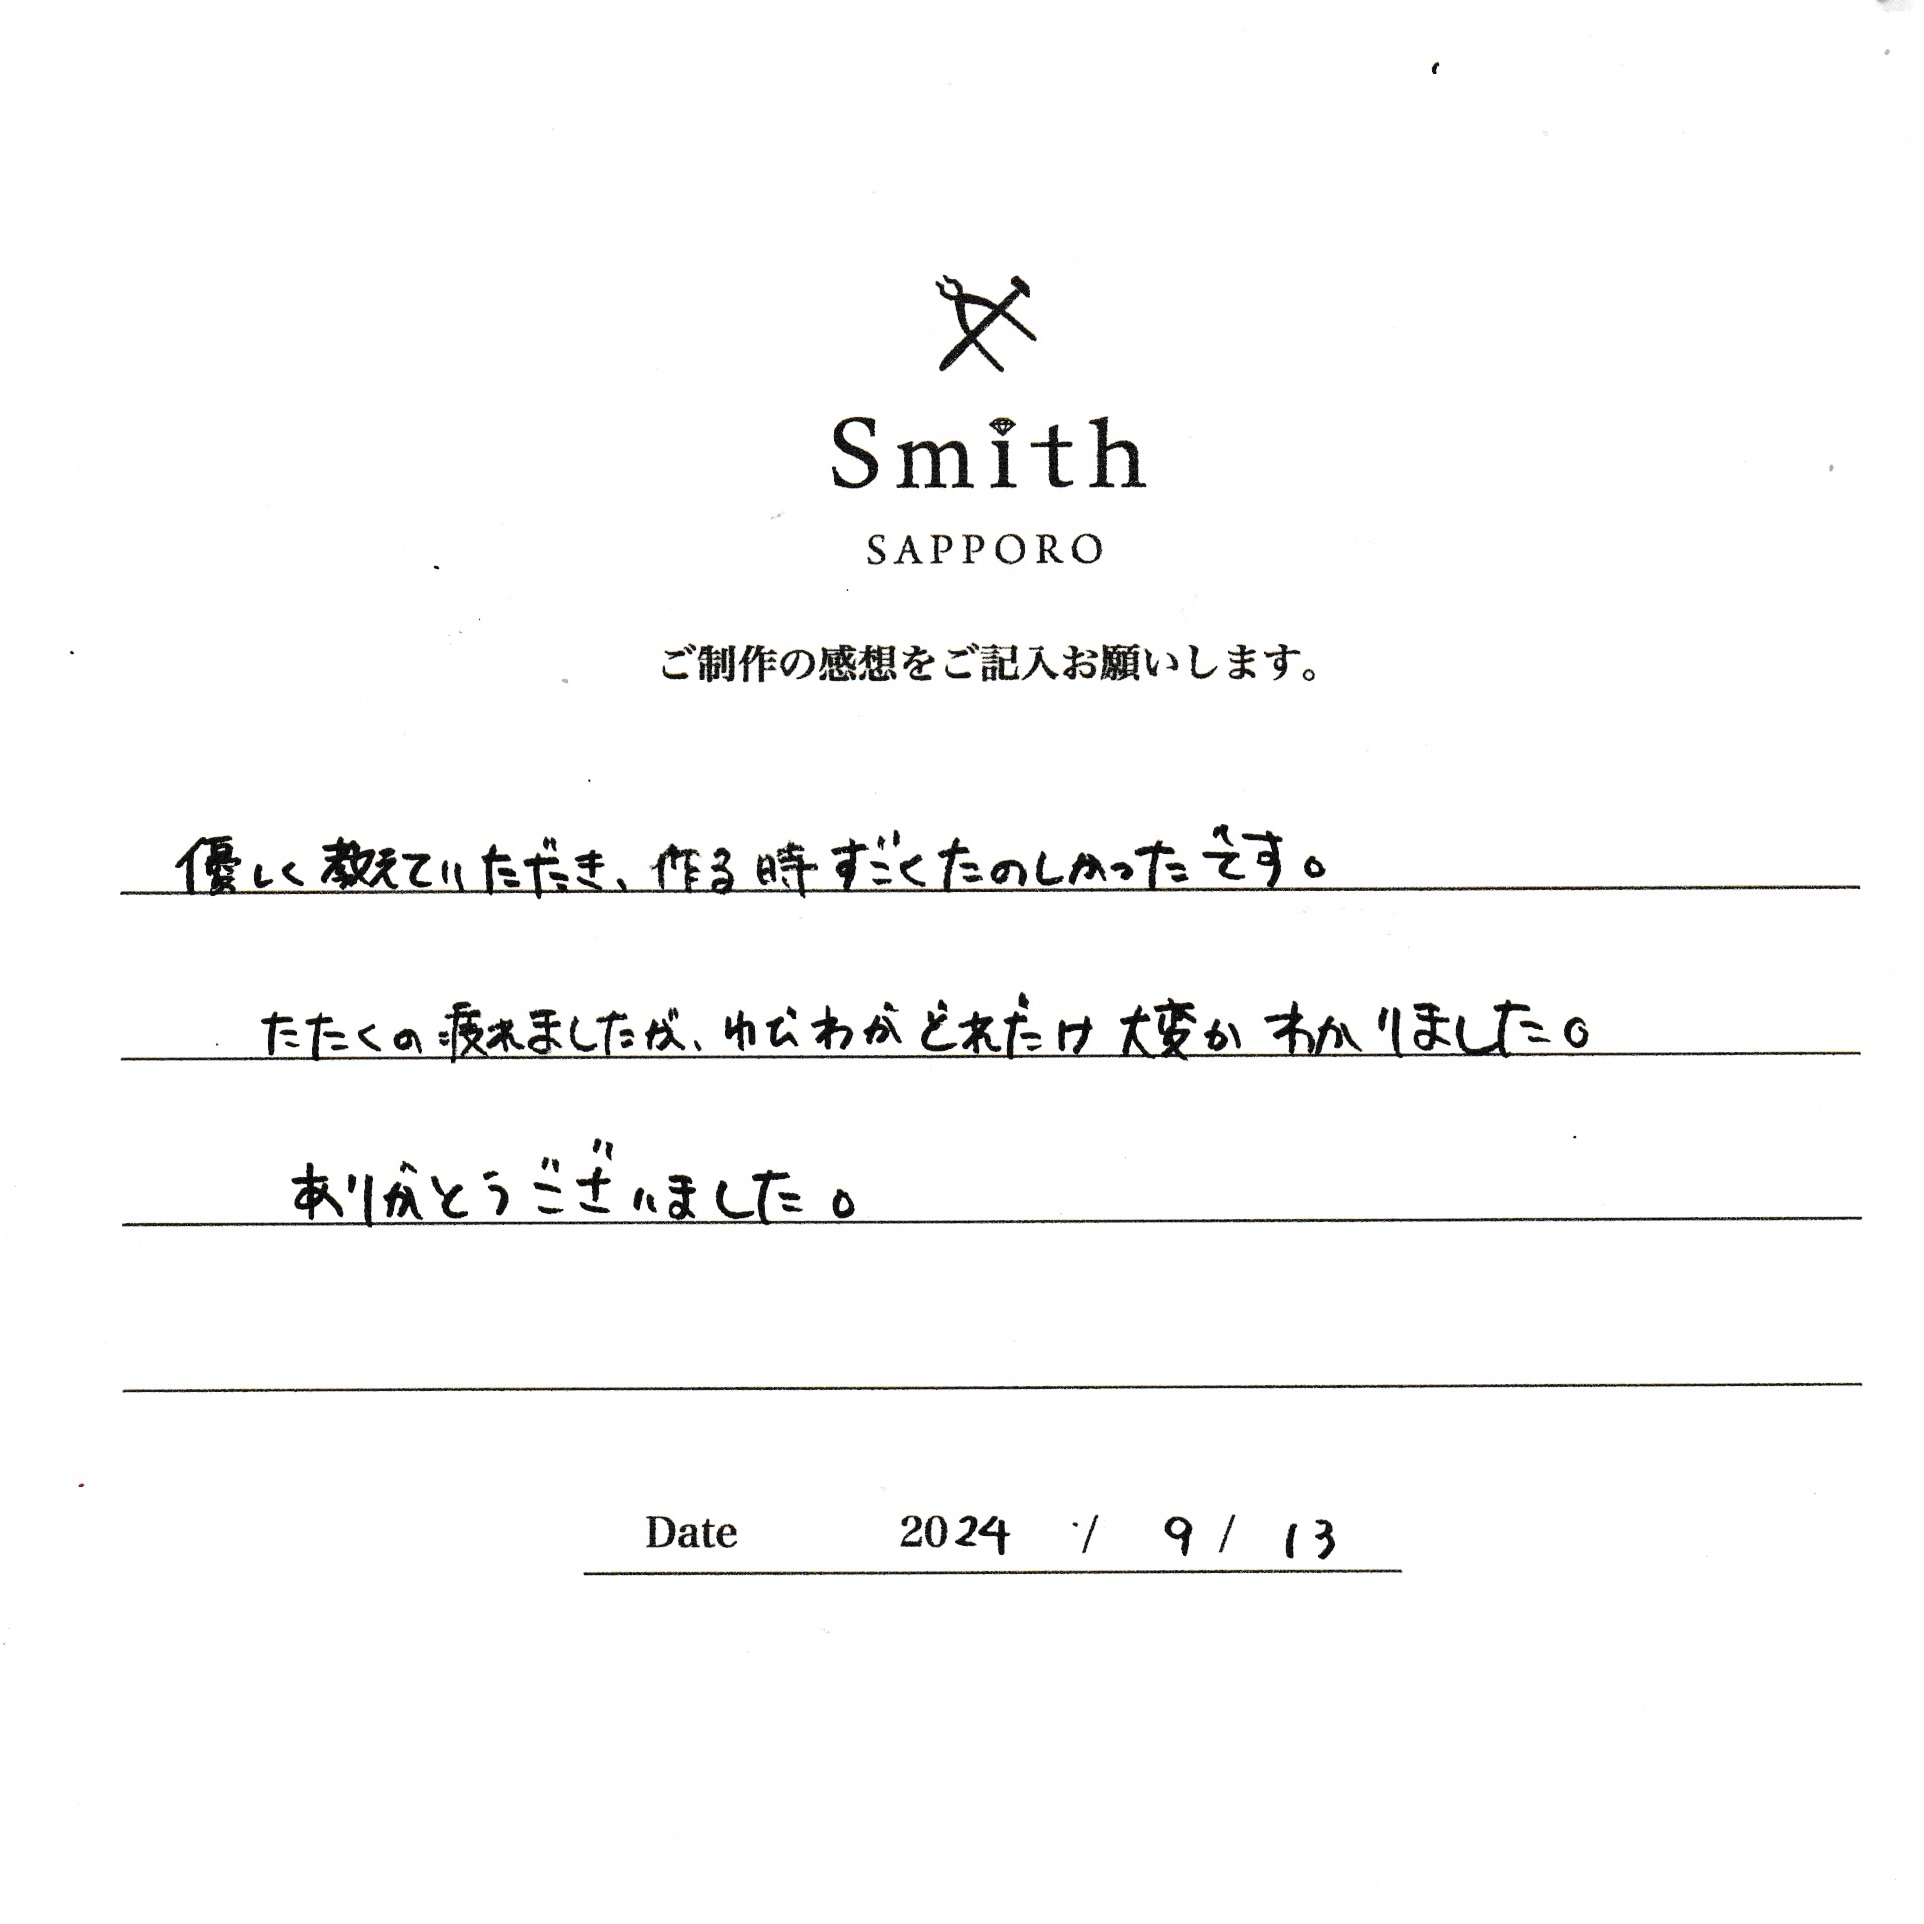 Smith
SAPPORO
ご制作の感想をご記入お願いします。
優しく教えていただき、作る時すごくたのしかったです。
たたくの疲れましたが、ゆびわがどれだけ大変かわかりました。
ありがとうございました。
Date 2024 / 9 / 13